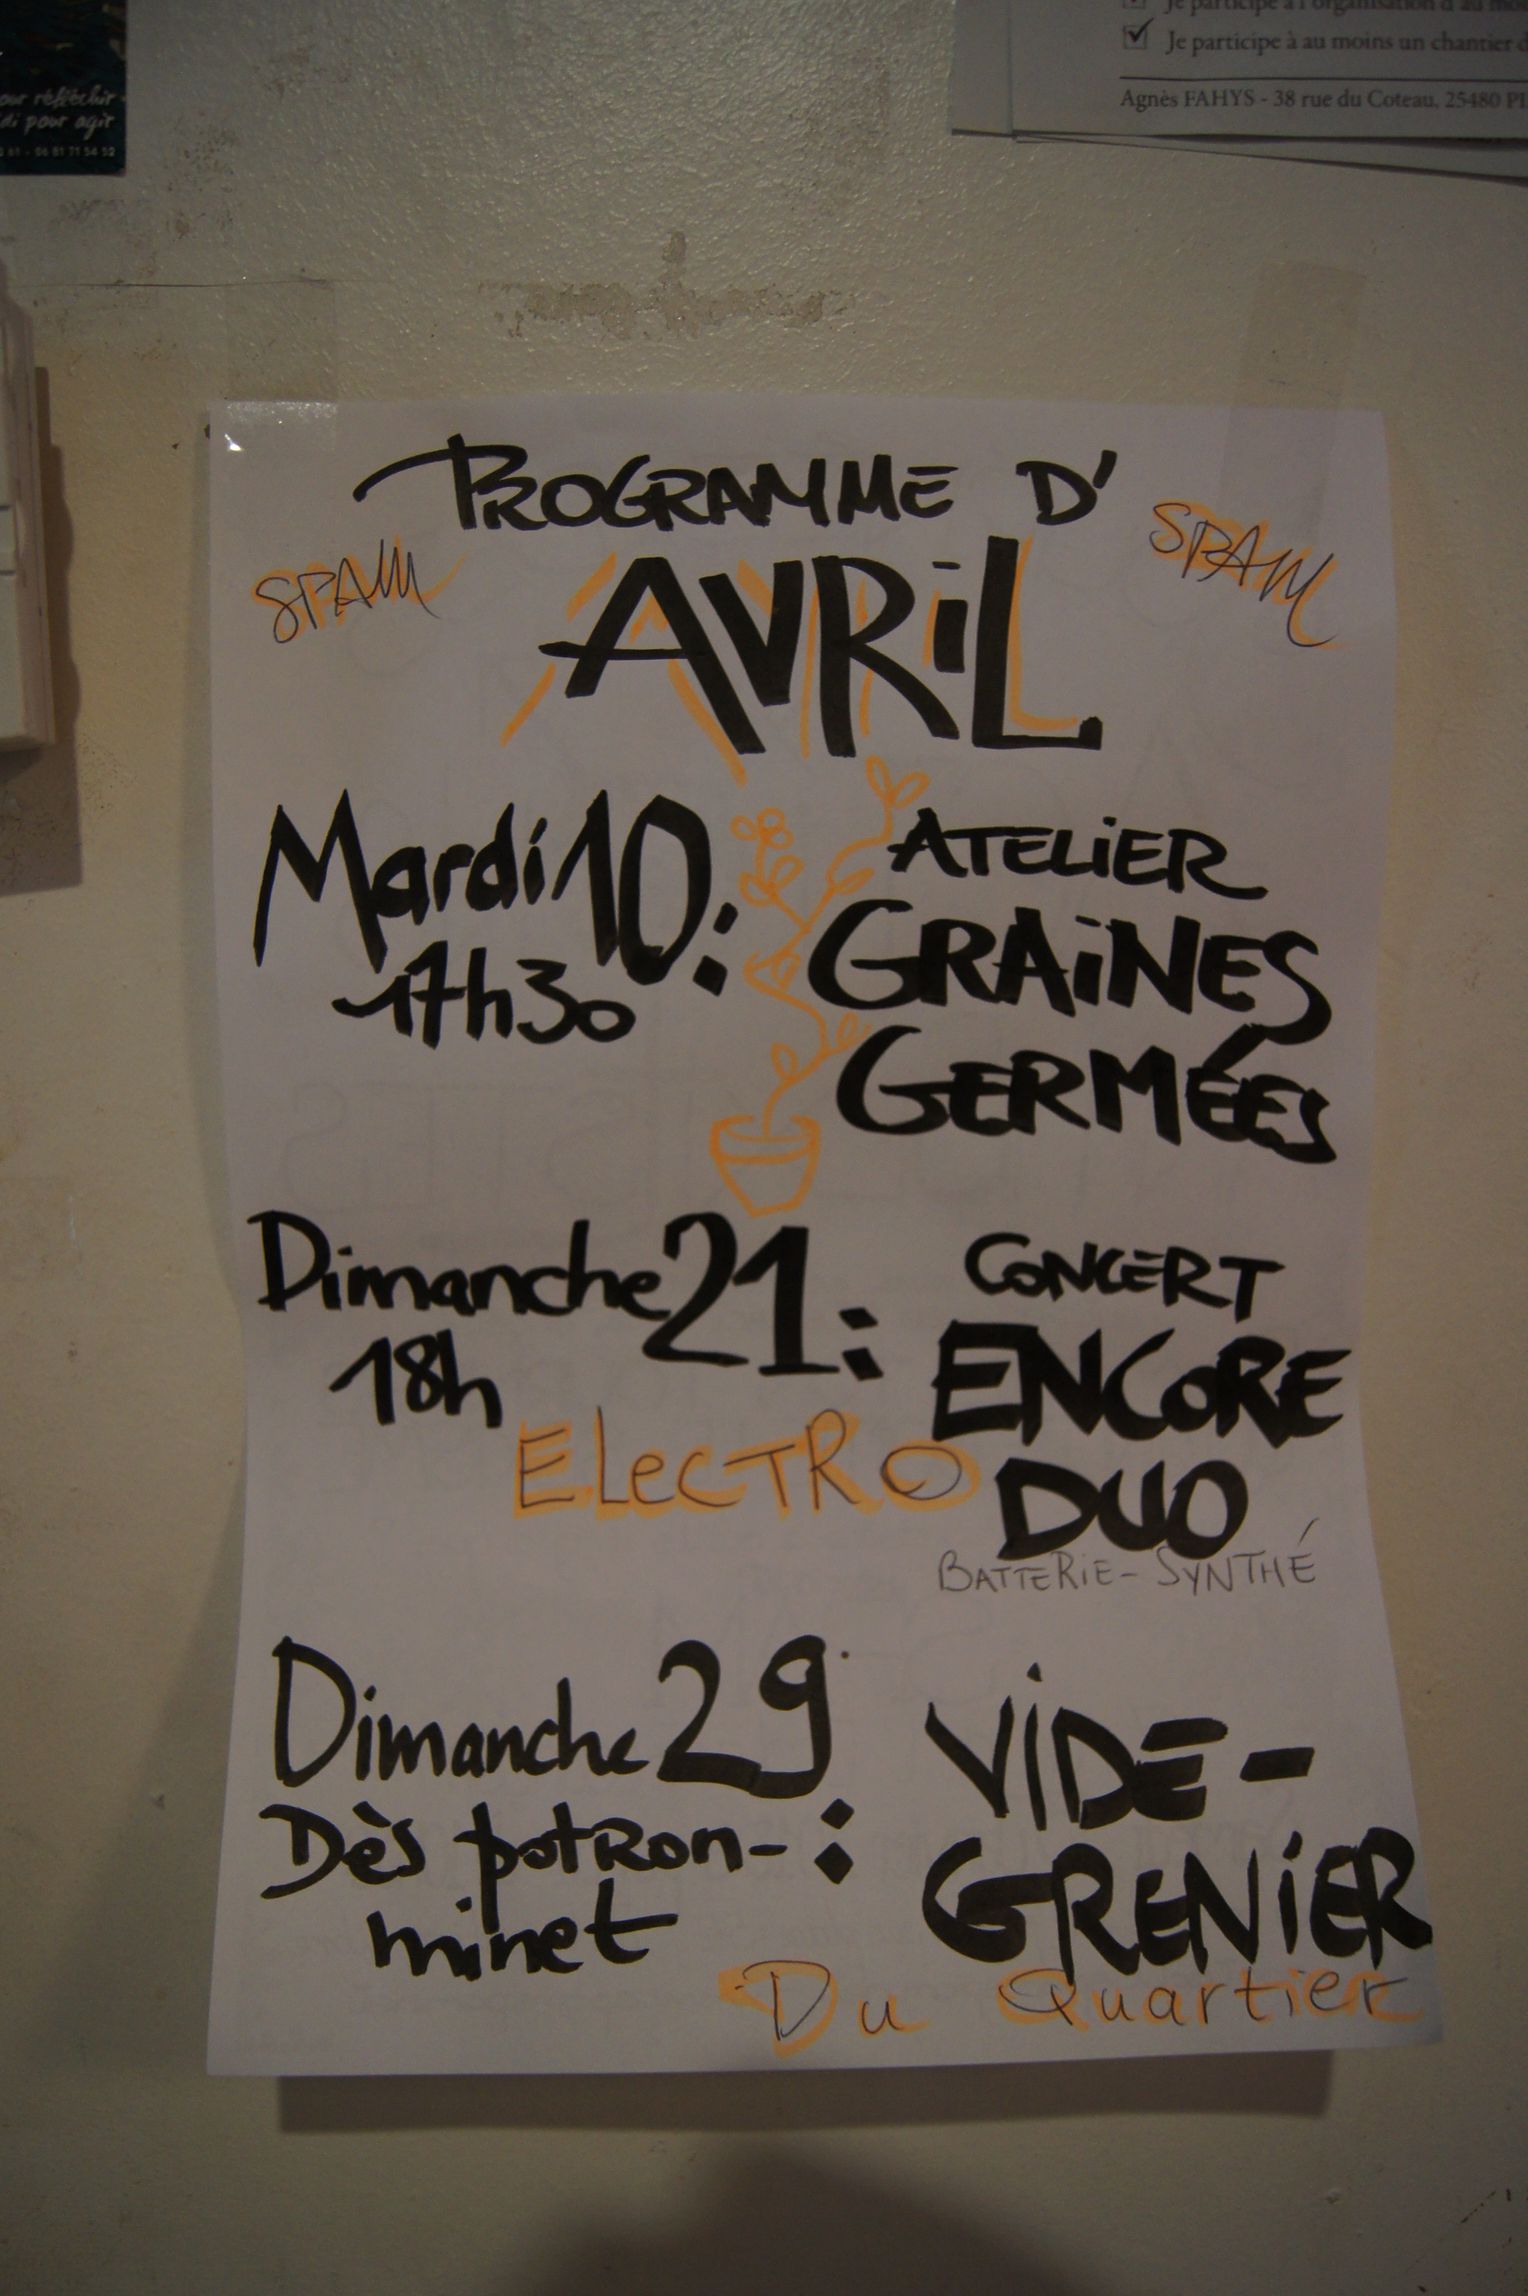 our réfléchir
di pour agir
0 61 - 06 81 71 54 52
Je participe à l'organisation d'au moi
Je participe à au moins un chantier d
Agnès FAHYS - 38 rue du Coteau, 25480 PI
PROGRAMME D'
SPAM
AVRiL
SPAM
Mardi 10:
17h30
ATELiER
GRAiNES
GERMÉES
Dimanche 21:
18h
CONCERT
ENCORE
DUO
ELecTRO
BATTERiE - SYNTHÉ
Dimanche 29:
Dès potron-
minet
ViDE-
GRENiER
Du Quartier